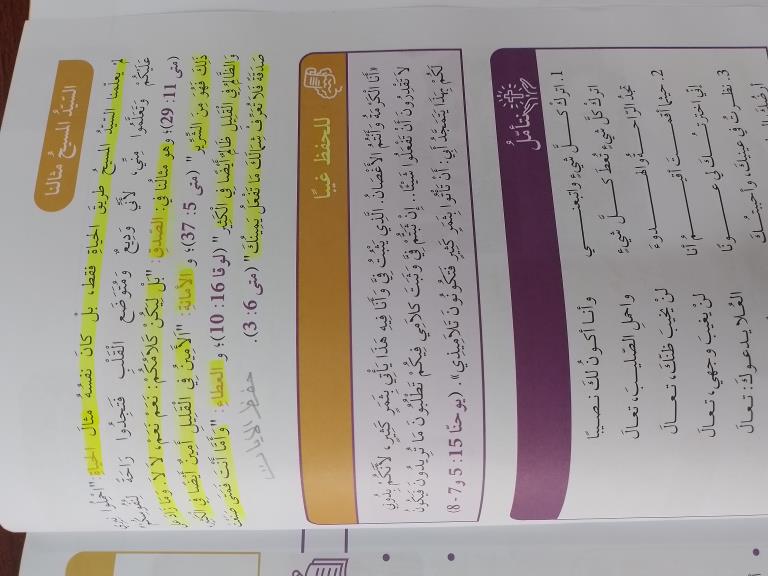 السَيِّدُ المسيحُ مثالنا
لم يعلّمنا السَيِّدُ المسيحُ طريقَ الحياةِ فقط، بلْ كانَ نفسُهُ مثالَ الحياةِ: "اِحْمِلُوا نِيرِي
عَلَيْكُم وَتَعَلَّمُوا مِنِّي، لأَنِّي وَدِيعٌ وَمُتَوَضِع القَلْبِ فَتَجِدُوا رَاحَةً لِنُفُوسِكُمْ"
(متى 11: 29)؛ وهو مثالُنا في: الصّدقِ: "بَلْ لِيَكُنْ كَلامُكُمْ: نَعَمْ نَعَمْ، لاَ لاَ. وَمَا زَادَ عَلَى
ذَلِكَ فَهُوَ مِنَ الشِّرِّيرِ" (متى 5: 37)؛ و الأمانة: "اَلأَمِينُ فِي القَلِيلِ أَمِينٌ أَيْضًا فِي الكَثِيرِ
وَالظَّالِمُ فِي القَلِيلِ ظَالِمٌ أَيْضًا فِي الْكَثِيرِ" (لوقا 16: 10)؛ و العطاءِ: "وَأَمَّا أَنْتَ فَمَتَى صَنَعْتَ
صَدَقَةً فَلاَ تُعَرِّفْ شِمَالَكَ مَا تَفْعَلُ يَمِينُكَ" (متى 6: 3).
حفظ الايات
للحفظ غيبًا
«أَنَا الْكَرْمَةُ وَأَنْتُمُ الأَغْصَانُ. الَّذِي يَثْبُتُ فِيَّ وَأَنَا فِيهِ هَذَا يَأْتِي بِثَمَرٍ كَثِيرٍ، لأَنَّكُمْ بِدُونِي
لاَ تَقْدِرُونَ أَنْ تَفْعَلُوا شَيْئًا.. إِنْ ثَبَتُّمْ فِيَّ وَثَبَتَ كَلاَمِي فِيكُمْ تَطْلُبُونَ مَا تُرِيدُونَ فَيَكُونُ
لَكُمْ بِهَذَا يَتَمَجَّدُ أَبِي: أَنْ تَأْتُوا بِثَمَرٍ كَثِيرٍ فَتَكُونُونَ تَلاَمِيذِي». (يوحنّا 15: 5 و7-8)
نتأمّلُ
1. اترك كـــلَّ شيءٍ واتبعنـــي وأنـا أكـونُ لكَ نـصيبًا
اتركْ كلَّ شيءٍ تُعطَ كـــلَّ شيءٍ واحملِ الصّليبَ، تعـالَ
2. لنْ يخيبَ ظنُّكَ، تعـالَ
تجدُ الرّاحـةَ والهـــدوءَ
3. نظـرتُ في عينيكَ، وأحببتُـكَ العُـلا يـدعـوكَ: تـعـالَ